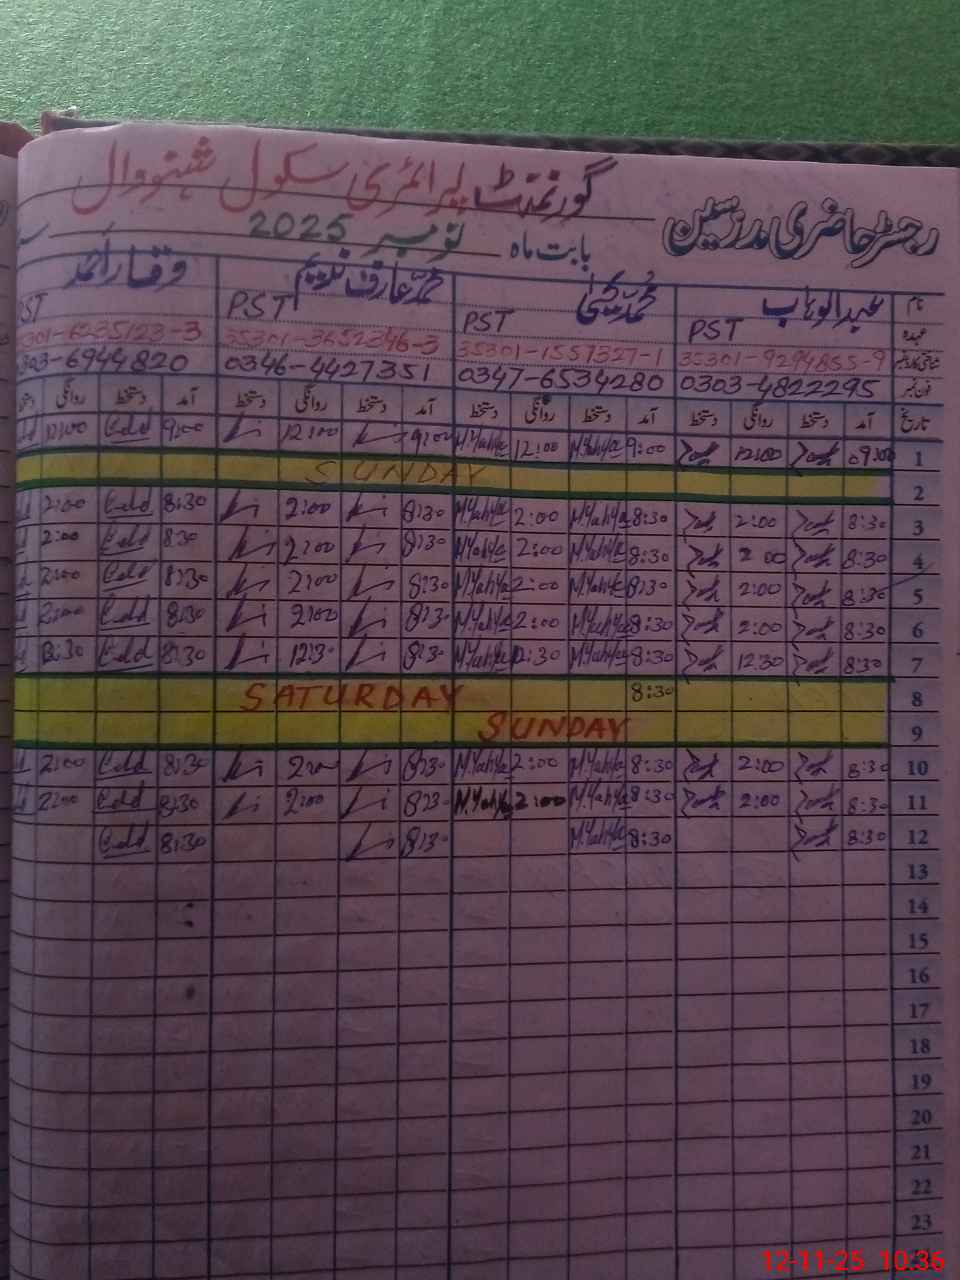 گورنمنٹ پرائمری سکول
رجسٹر حاضری مدرسین
بابت ماہ نومبر 2025
نام عبدالوہاب محمد یحییٰ محمد عارف ندیم وقار احمد
عہدہ PST PST PST PST
35301-9294855-9 35301-1557327-1 35301-3652346-3 301-6235123-3
فون نمبر 0303-4822295 0347-6534280 0346-4427351 303-6944820
تاریخ آمد دستخط روانگی دستخط آمد دستخط روانگی دستخط آمد دستخط روانگی دستخط آمد دستخط روانگی
1 09:00 12:00 9:00 M.Yahya 12:00 M.Yahya 9:00 12:00 9:00 12:00
2 SUNDAY
3 8:30 2:00 8:30 M.Yahya 2:00 M.Yahya 8:30 2:00 8:30 2:00
4 8:30 2 00 8:30 M.Yahya 2:00 M.Yahya 8:30 2:00 8:30 2:00
5 8:30 2:00 8:30 M.Yahya 2:00 M.Yahya 8:30 2:00 8:30 2:00
6 8:30 2:00 8:30 M.Yahya 2:00 M.Yahya 8:30 2:00 8:30 2:00
7 8:30 12:30 8:30 M.Yahya 12:30 M.Yahya 8:30 12:30 8:30 12:30
8 8:30 SATURDAY
9 SUNDAY
10 8:30 2:00 8:30 M.Yahya 2:00 M.Yahya 8:30 2:00 8:30 2:00
11 8:30 2:00 8:30 M.Yahya 2:00 M.Yahya 8:30 2:00 8:30 2:00
12 8:30 8:30 M.Yahya 8:30 8:30
13
14
15
16
17
18
19
20
21
22
23
12-11-25 10:36